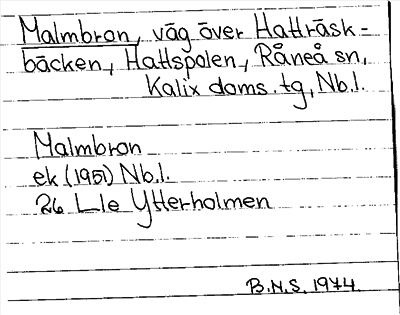 Malmbron, väg över Hatträsk-
bäcken, Hattspolen, Råneå sn,
Kalix doms. tg, Nb.l.
Malmbron
ek (1951) Nb.l.
26 Lle Ytterholmen
B.N.S. 1974.